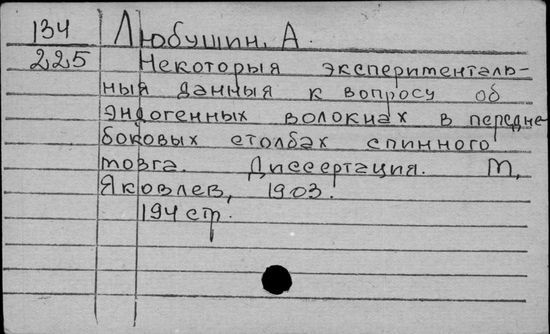 134 Любушин, А.
225 Некоторыя эксперименталь-
ныя данныя к вопросу об
эндогенных волокнах в передне
боковых столбах спинного
мозга. Диссертация. М,
Яковлев, 1903.
194 стр.